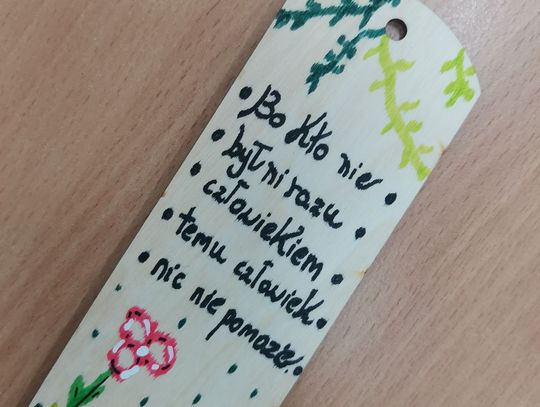 Bo Kto nie
był ni razu
człowiekiem
temu człowiek
nic nie pomoże.